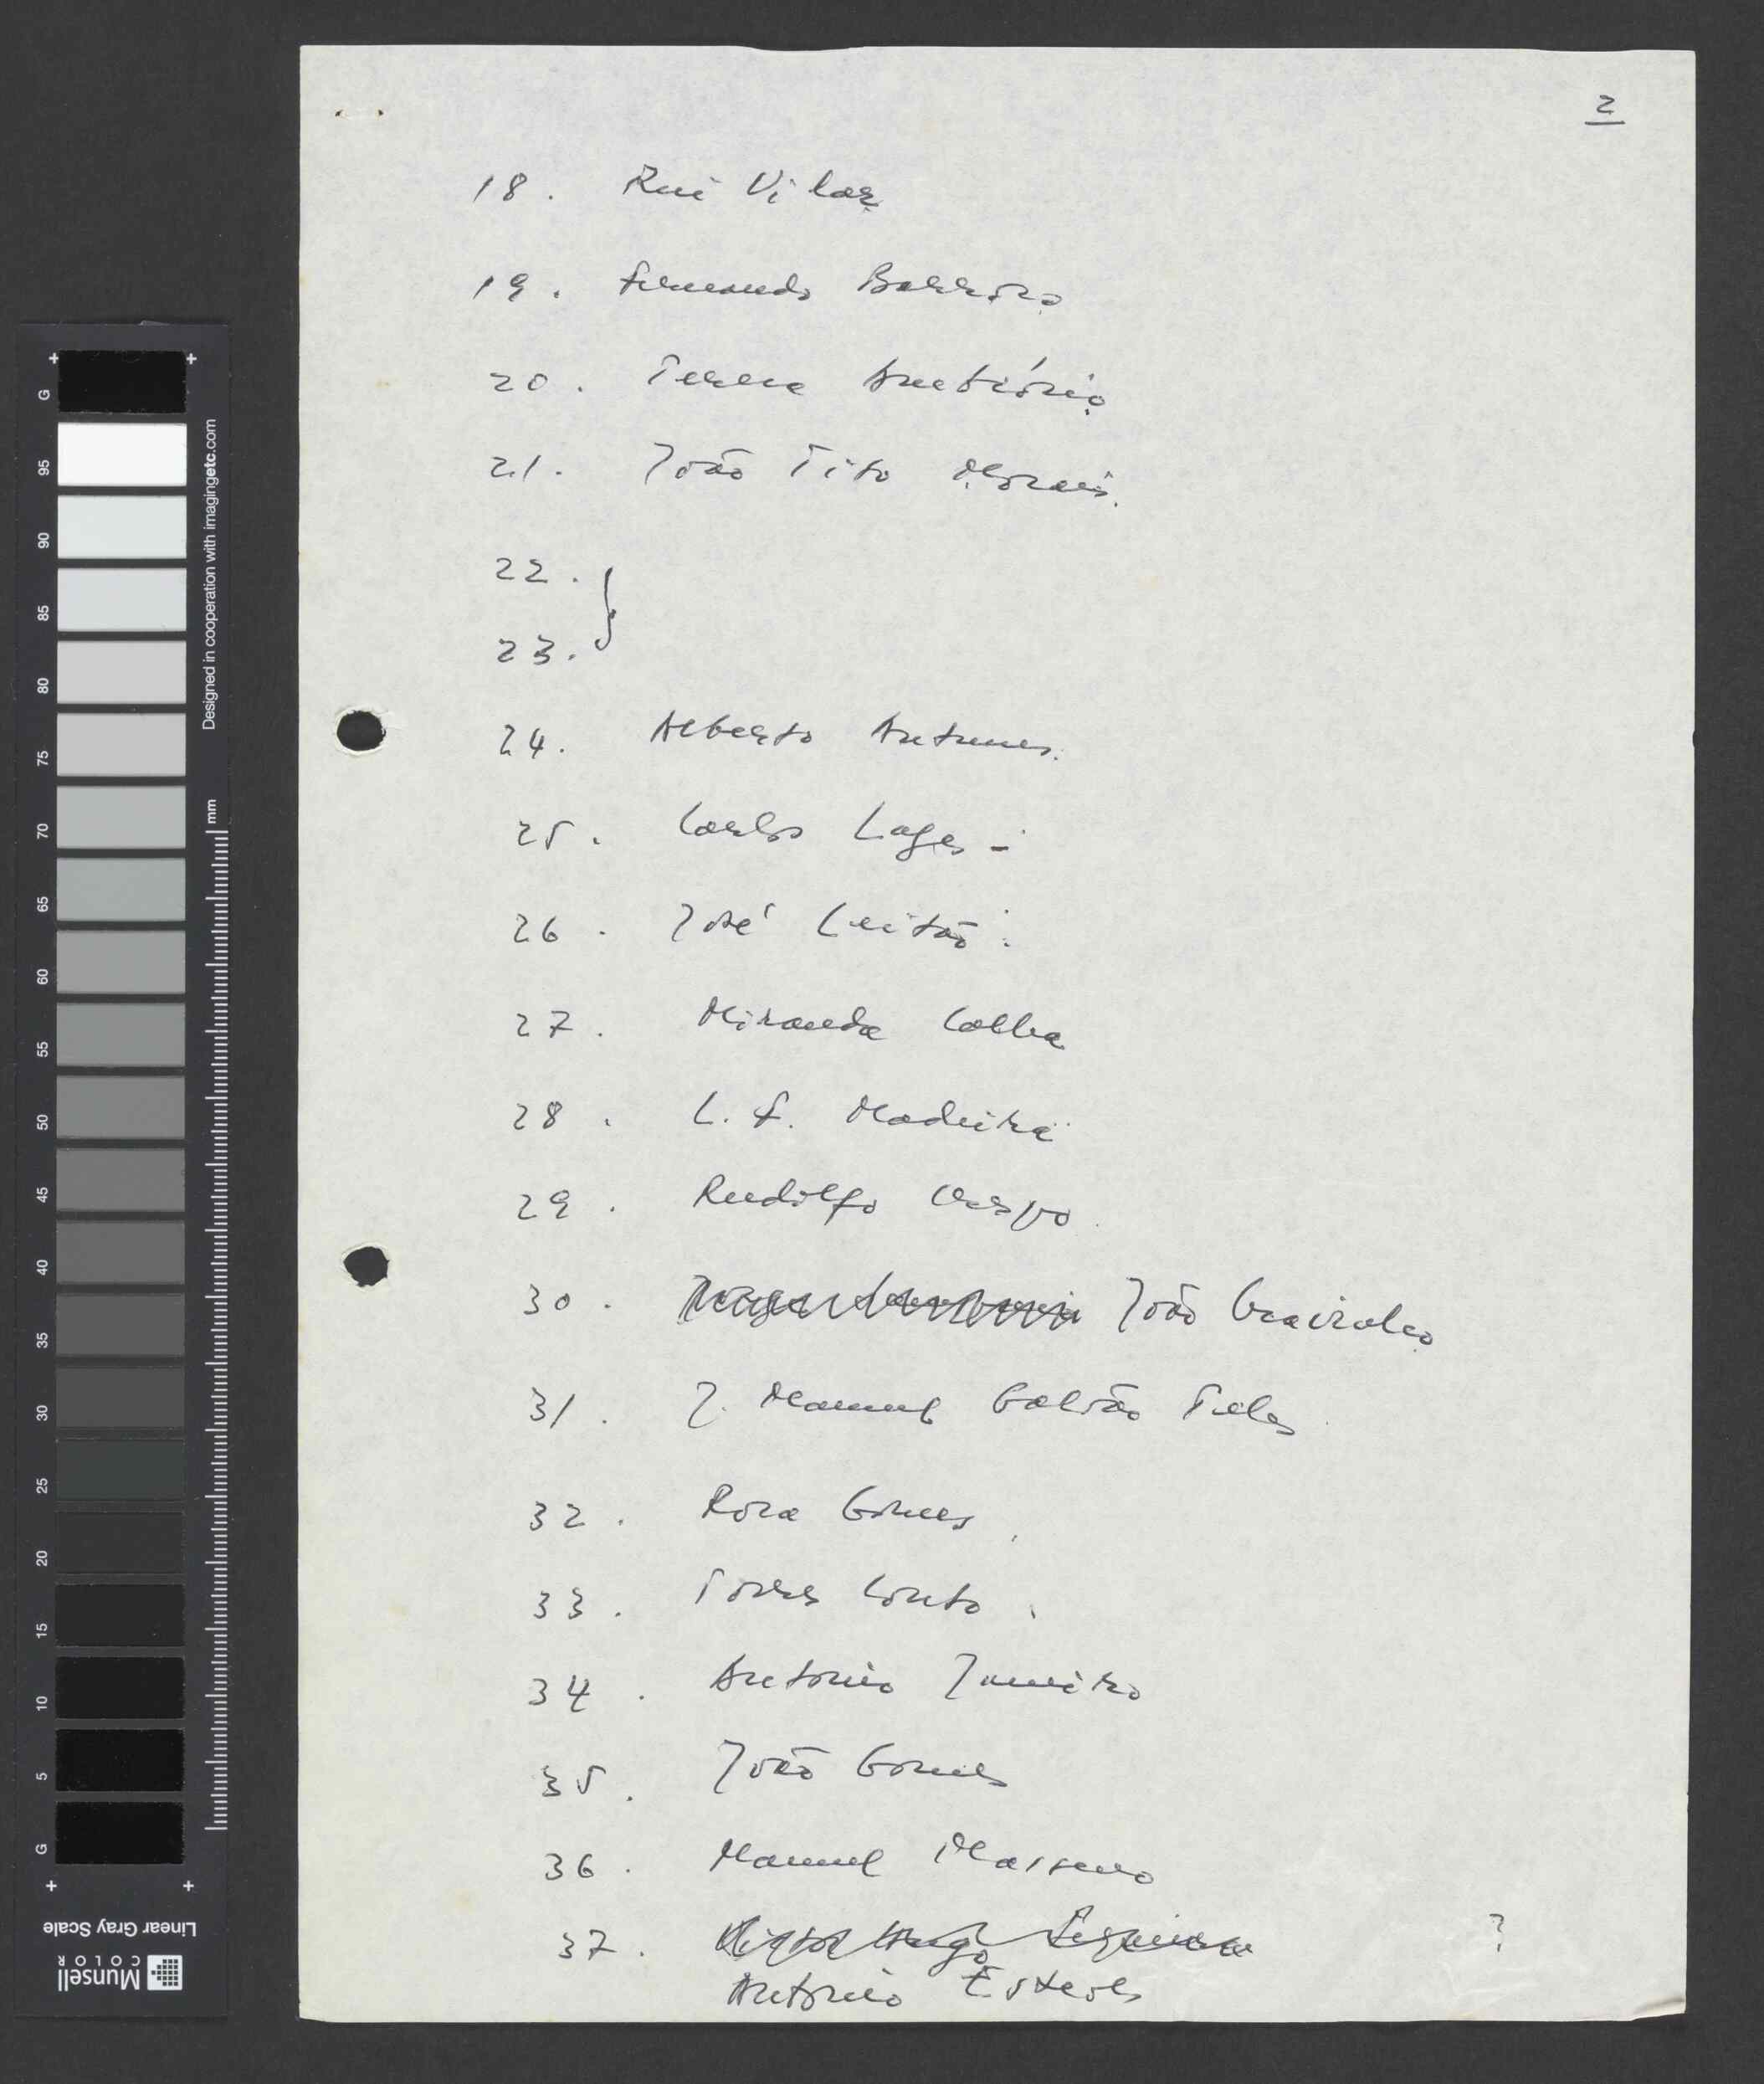 2
18. Rui Vilar
19. Fernando Barroso
20. Teresa Ambrósio
21. João Tito Morais.
22. }
23.
24. Alberto Antunes.
25. Carlos Lages -
26. José Leitão.
27. Miranda Calha
28. L. F. Madeira
29. Rudolfo Crespo.
30. João
31. J. Manuel Galvão Teles
32. Rosa Gomes.
33. Torres Couto.
34. Antonio Janeiro
35. João Gomes
36. Manuel
37. Victor Hugo Sequeira ?
Antonio Esteves
G 95 90 85 80 75 70 65 60 55 50 45 40 35 30 25 20 15 10 5 G
Designed in cooperation with imagingetc.com
mm
Linear Gray Scale
Munsell
COLOR